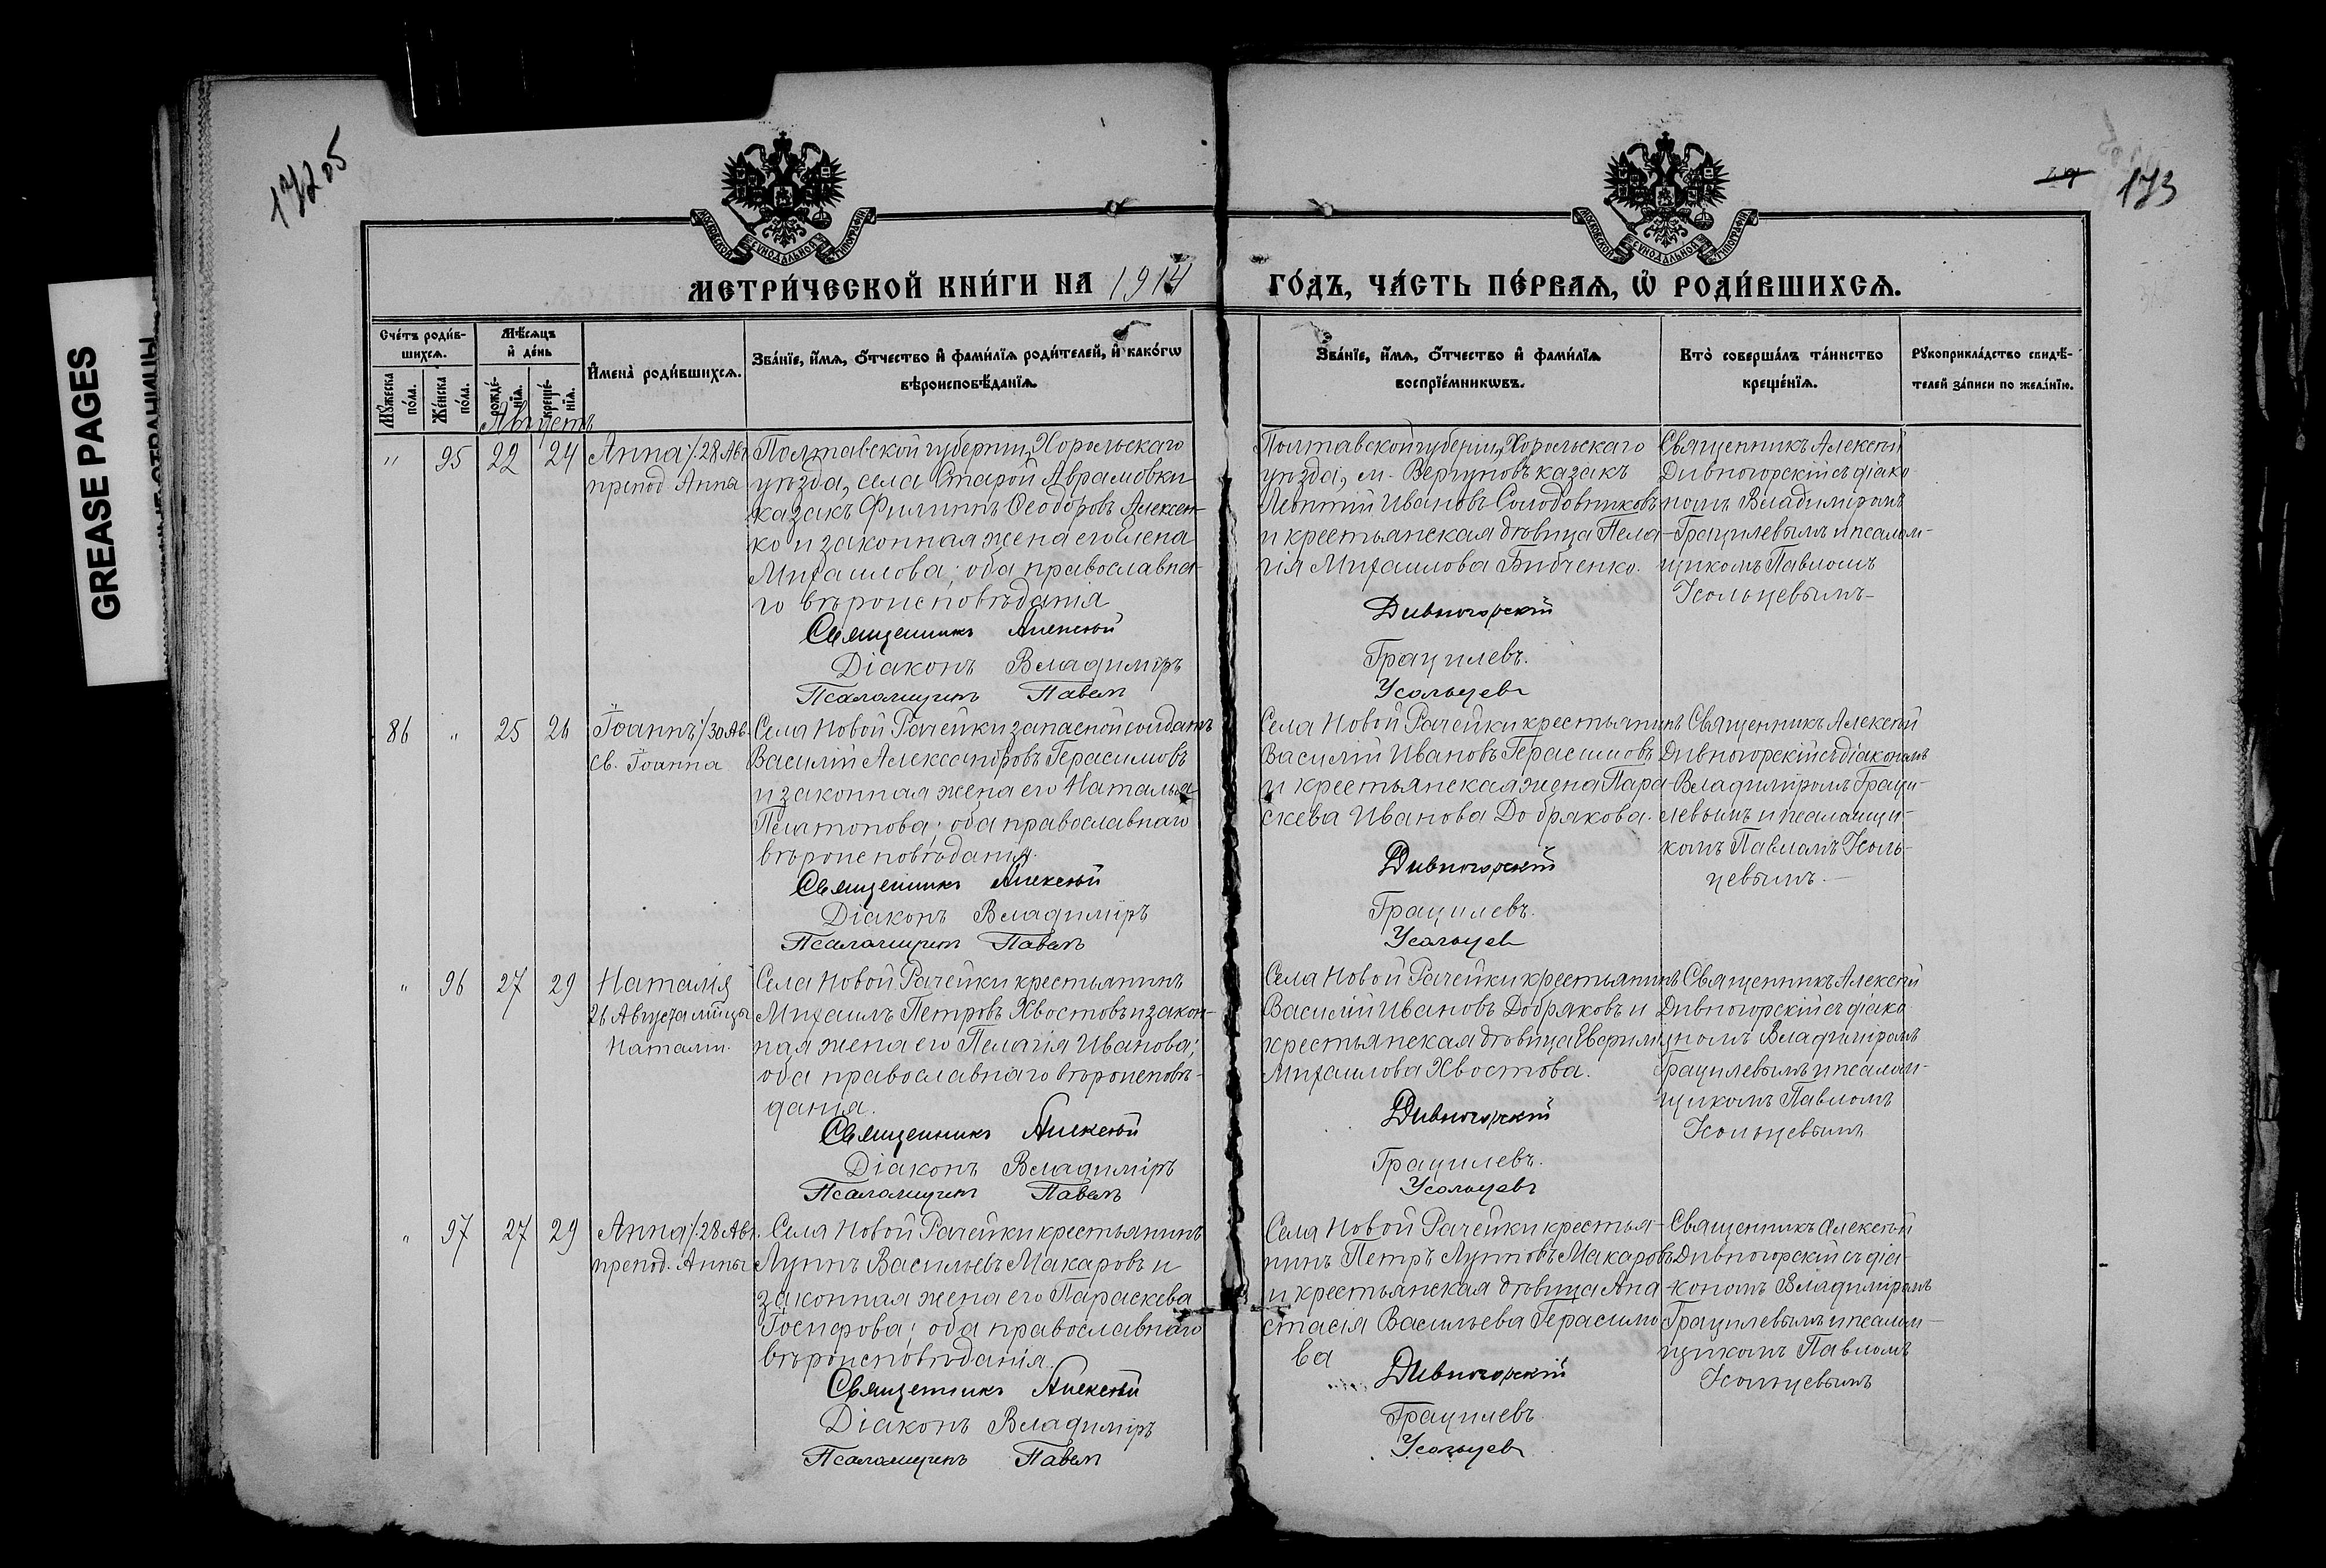 GREASE PAGES
173
МЕТРИ́ЧЕСКОЙ КНИ́ГИ НА 1914
ГО́ДЪ, ЧА́СТЬ ПЕ́РВАѦ, Ѡ҆ РОДИ́ВШИХСѦ.
Сче́тъ роди́в-
шихсѧ.
Мѣ́сѧцъ
и҆ де́нь
Мꙋ́жеска по́ла.
Же́нска по́ла.
рожде́-
нїѧ.
креще́-
нїѧ.
И҆мена̀ роди́вшихсѧ.
Зва́нїе, и҆́мѧ, ѻ҆́тчество и҆ фами́лїѧ роди́телей, и҆ како́гѡ
вѣроисповѣ́данїѧ.
Зва́нїе, и҆́мѧ, ѻ҆́тчество и҆ фами́лїѧ
воспрїе́мникѡвъ.
Кто̀ соверша́лъ та́инство
креще́нїѧ.
Рꙋкоприкла́дство свидѣ́-
телей за́писи по жела́нїю.
Августъ
" 95 22 24
Анна /28 Авг
препод. Анны
Полтавской губерніи, Хорольскаго
уѣзда, села Старой Аврамовки
казакъ Филиппъ Ѳеодоровъ Алексен-
ко и законная жена его Елена
Михаилова; оба православна-
го вѣроисповѣданія
Священникъ Алексѣй
Діаконъ Владиміръ
Псаломщикъ Павелъ
Полтавской губерніи, Хорольскаго
уѣзда, м. Вергуновъ казакъ
Леонтій Ивановъ Солодовниковъ
и крестьянская дѣвица Пела-
гія Михаилова Бибченко.
Дивногорскій
Грацилевъ.
Усольцевъ
Священникъ Алексѣй
Дивногорскій съ діако
номъ Владиміромъ
Грацилевымъ и псалом-
щикомъ Павломъ
Усольцевымъ
86 " 25 26
Іоаннъ /30 Ав.
св. Іоанна
Села Новой Рачейки запасной солдатъ
Василій Александровъ Герасимовъ
и законная жена его Наталья
Платонова; оба православнаго
вѣроисповѣданія.
Священникъ Алексѣй
Діаконъ Владиміръ
Псаломщикъ Павелъ
Села Новой Рачейки крестьянинъ
Василій Ивановъ Герасимовъ
и крестьянская жена Пара-
скева Иванова Добрякова.
Дивногорскій
Грацилевъ.
Усольцевъ
Священникъ Алексѣй
Дивногорскій съ діакономъ
Владиміромъ Граци-
левымъ и псаломщи-
комъ Павломъ Усоль-
цевымъ.
" 96 27 29
Наталія
26 Августа мцицы
Наталіи.
Села Новой Рачейки крестьянинъ
Михаилъ Петровъ Хвостовъ и закон-
ная жена его Пелагія Иванова;
оба православнаго вѣроисповѣ-
данія.
Священникъ Алексѣй
Діаконъ Владиміръ
Псаломщикъ Павелъ
Села Новой Рачейки крестьянинъ
Василій Ивановъ Добряковъ и
крестьянская дѣвица Евфимія
Михаилова Хвостова.
Дивногорскій
Грацилевъ.
Усольцевъ
Священникъ Алексѣй
Дивногорскій съ діако
номъ Владиміромъ
Грацилевымъ и псалом-
щикомъ Павломъ
Усольцевымъ
" 97 27 29
Анна /28 Авг.
препод. Анны
Села Новой Рачейки крестьянинъ
Луппъ Васильевъ Макаровъ и
законная жена его Параскева
Іосифова; оба православнаго
вѣроисповѣданія.
Священникъ Алексѣй
Діаконъ Владиміръ
Псаломщикъ Павелъ
Села Новой Рачейки крестья-
нинъ Петръ Лупповъ Макаровъ
и крестьянская дѣвица Ана-
стасія Васильева Герасимо
ва
Дивногорскій
Грацилевъ.
Усольцевъ
Священникъ Алексѣй
Дивногорскій съ діа-
кономъ Владиміромъ
Грацилевымъ и псалом-
щикомъ Павломъ
Усольцевымъ